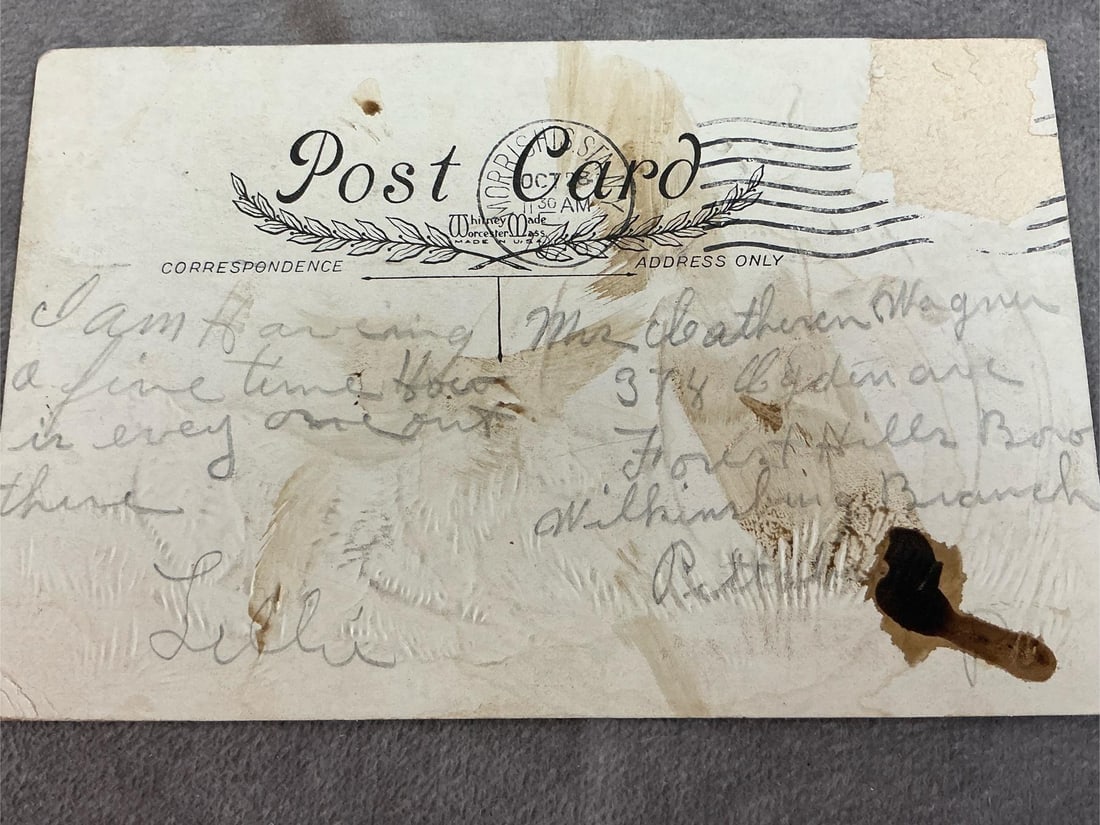 Post Card
MORRIS STA. N.Y.
OCT 28
11 30 AM
Whitney Made
Worcester Mass
MADE IN U.S.A.
CORRESPONDENCE
ADDRESS ONLY
I am Having
a fine time How
is evey one out
there
Lillie
Mrs Catheren Wagner
374 ave
Forest Hills Boro
Wilkinsburg Branch